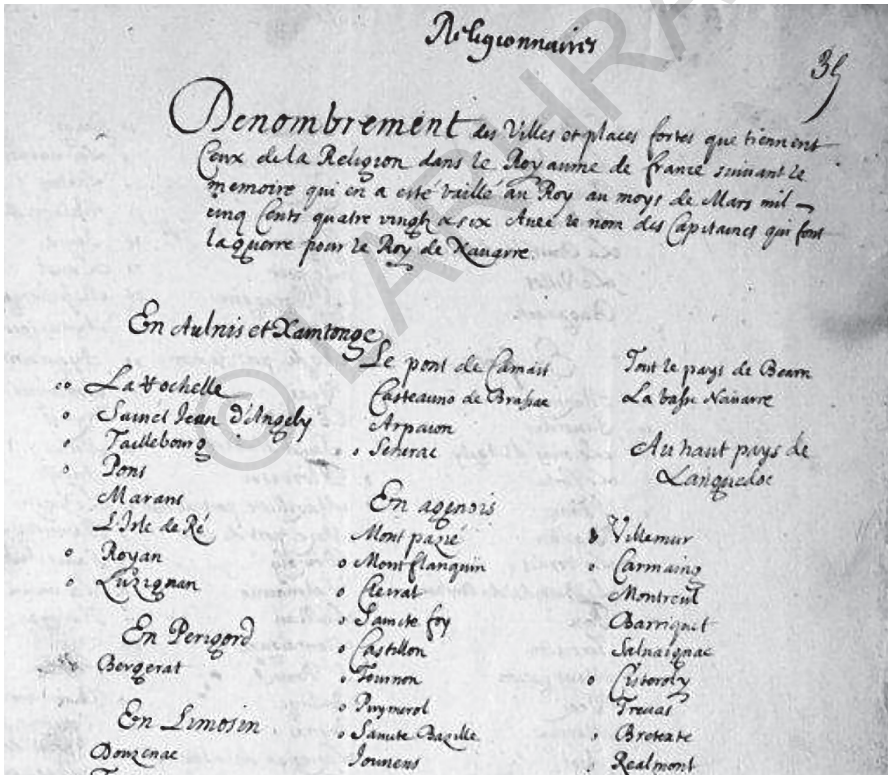 Religionnaires
35
Denombrement des Villes et places fortes que tiennent
Ceux de la Religion dans le Royaume de france suivant le
memoire qui en a esté baillé au Roy au moys de Mars mil
cinq Cents quatre vingh & six Avec le nom des Capitaines qui font
la guerre pour le Roy de Navarre
En Aulnis et Xaintonge
La Rochelle
Sainct Jean d'Angely
Taillebourg
Pons
Marans
L'Isle de Ré
Royan
Luzignan
En Perigord
Bergerat
En Limosin
Douzenac
Le pont de Camait
Casteauno de Brassac
Arpaion
Senerac
En agenois
Mont pazié
Mont flanquin
Cleirat
Saincte foy
Castillon
Tournon
Puymerol
Saincte Bazille
Tout le pays de Bearn
La basse Navarre
Au haut pays de
Languedoc
Villemur
Carmaing
Montreul
Barriquet
Salvaignac
Trevas
Breteate
Realmont
© LAPHRA